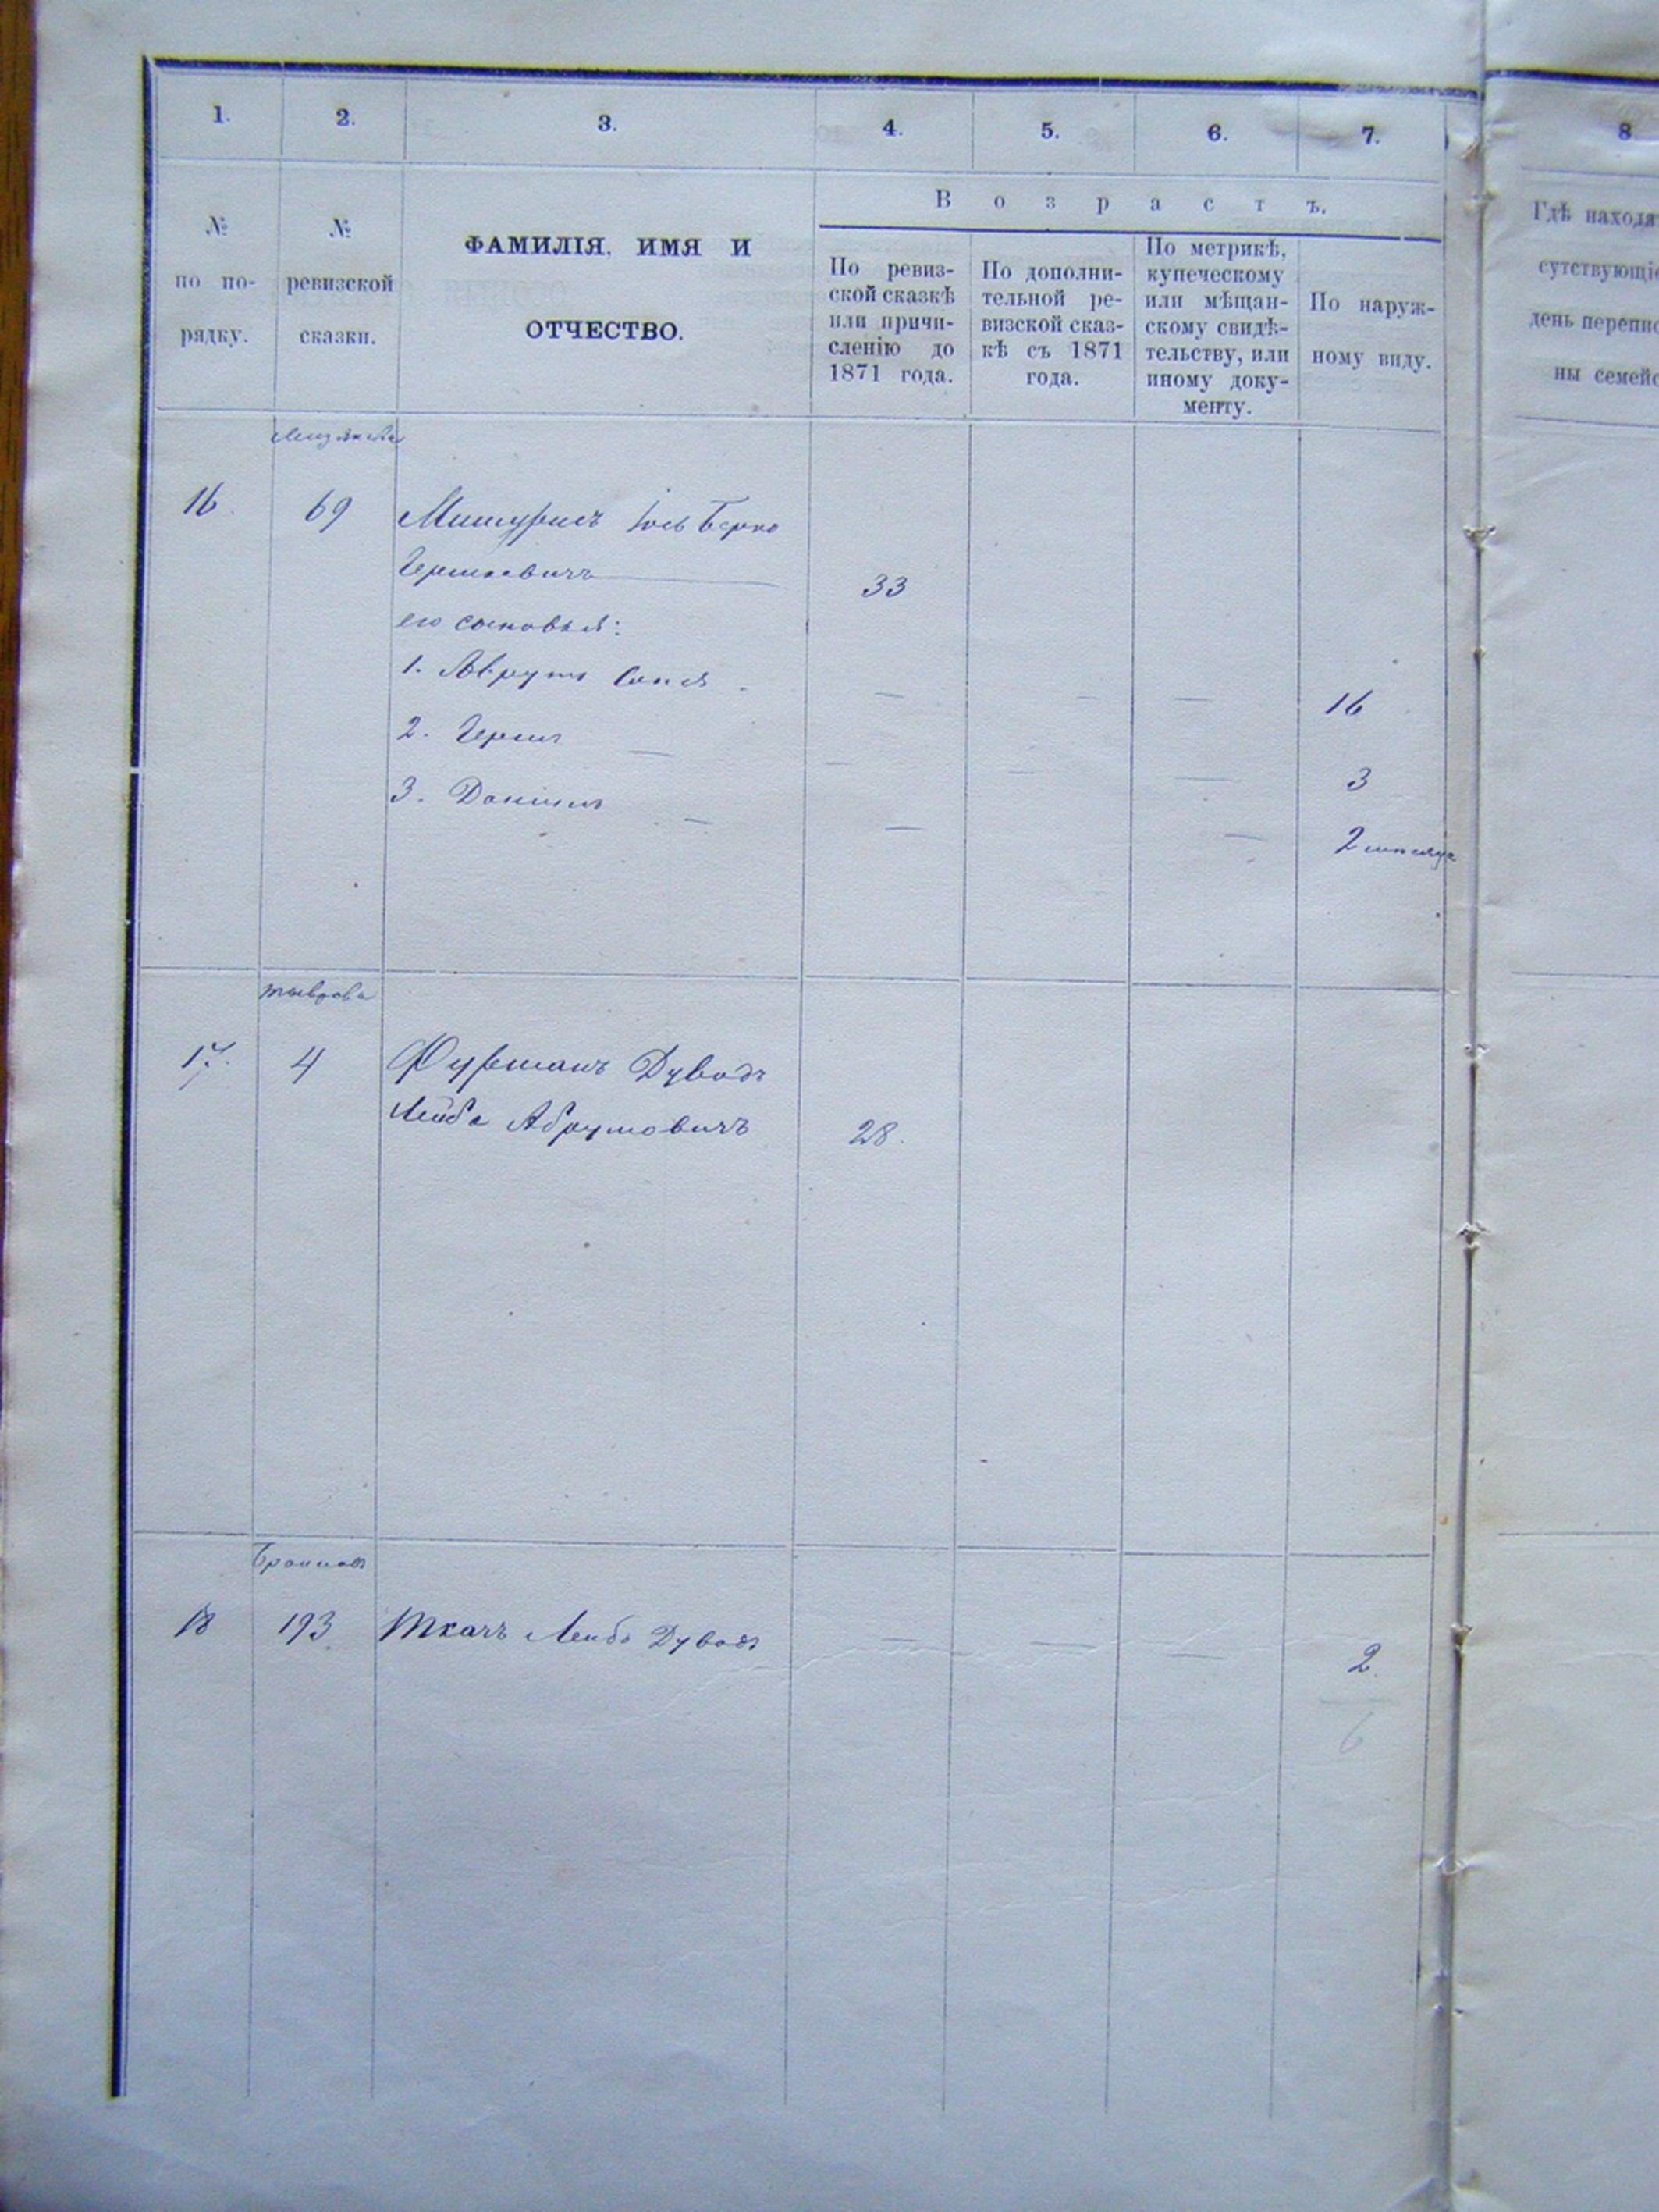 1.
2.
3.
4.
5.
6.
7.
8
№
по по-
рядку.
№
ревизской
сказки.
ФАМИЛІЯ, ИМЯ И
ОТЧЕСТВО.
Возрастъ.
По ревиз-
ской сказкѣ
или причи-
сленію до
1871 года.
По дополни-
тельной ре-
визской сказ-
кѣ съ 1871
года.
По метрикѣ,
купеческому
или мѣщан-
скому свидѣ-
тельству, или
иному доку-
менту.
По наруж-
ному виду.
Гдѣ наход
сутствующі
день перепис
ны семей
16.
69
Мишурисъ Іось Берко
Гершковичъ
33
его сыновья:
1. Аврумъ
— — — 16
2. Герш
— — — — 3
3. Даніилъ
— — — 2
Тыврова
17.
4
Фурманъ Дувидъ
Лейба Абрумовичъ
28.
18
193
Ткачъ Лейба Дувидъ
— — — 2.
6